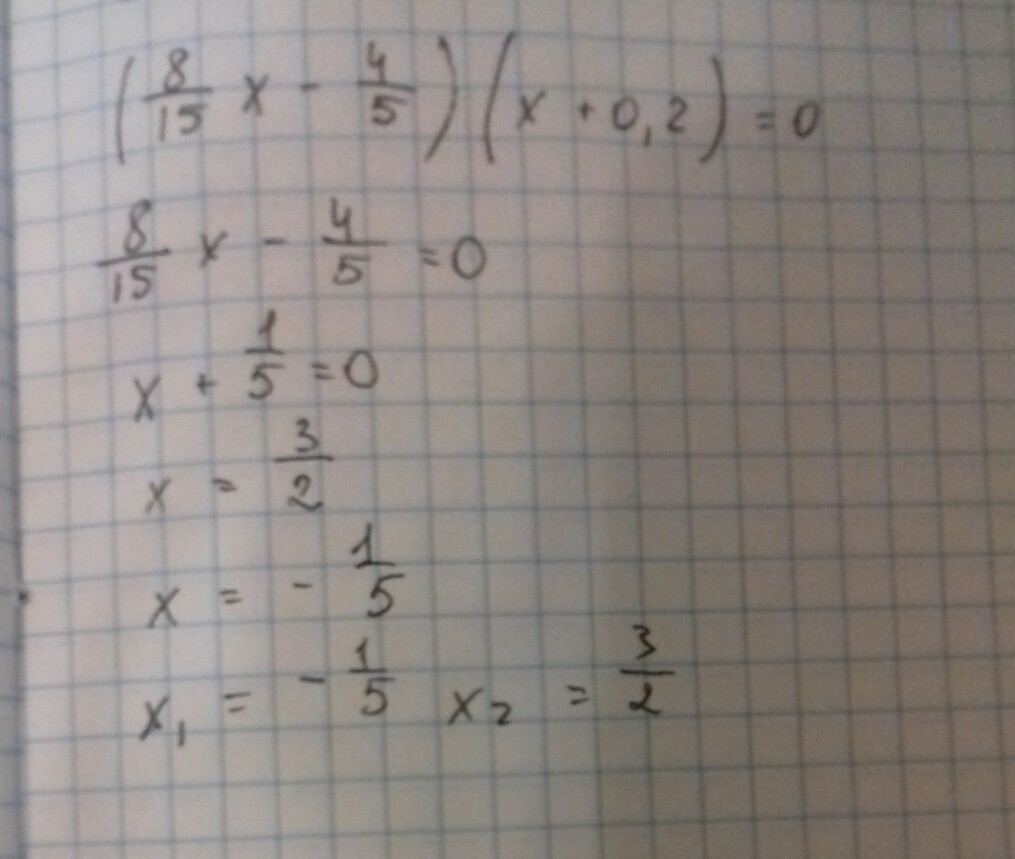 (8/15 x - 4/5)(x + 0,2) = 0
8/15 x - 4/5 = 0
x + 1/5 = 0
x = 3/2
x = - 1/5
x₁ = - 1/5 x₂ = 3/2